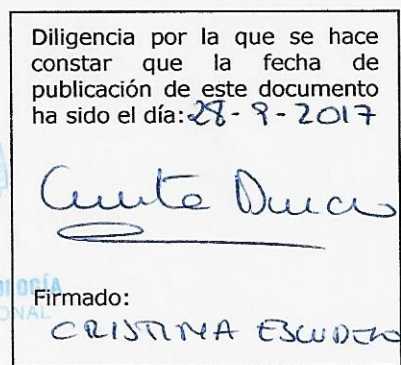 Diligencia por la que se hace
constar que la fecha de
publicación de este documento
ha sido el día: 28-9-2017
OGÍA
ONAL
Firmado:
CRISTINA ESCUDERO